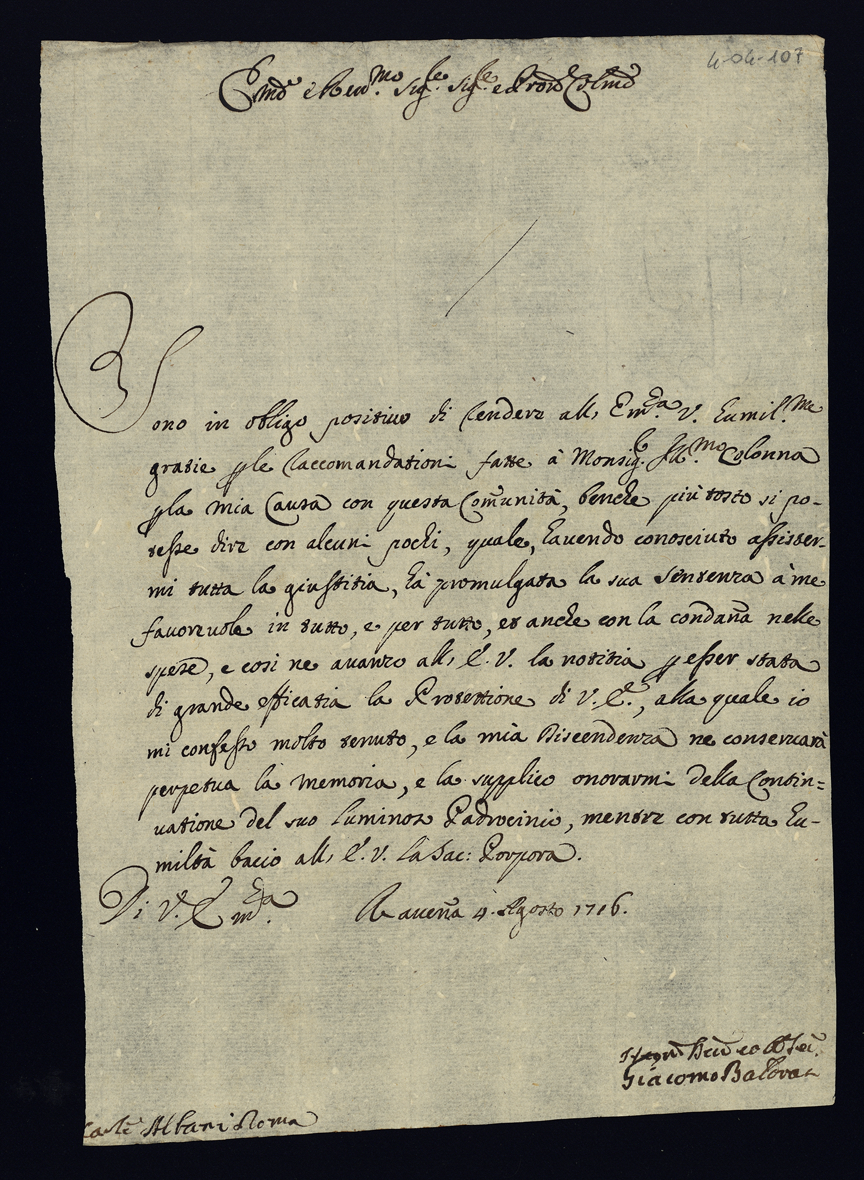 4-04-107
Em.º e Reu.mo Sig.re Sig.re e Pron Col.mo
Sono in obligo positiuo di rendere all' Em.za V. humil.me
gratie p le raccomandationi fatte à Monsig.r Ill.mo Colonna
p la mia Causa con questa Com̃unità, benche più tosto si po-
tesse dire con alcuni pochi, quale, hauendo conosciuto assister-
mi tutta la giustitia, hà promulgata la sua sentenza à me
fauoreuole in tutto, e per tutto, et anche con la condan̄a nelle
spese, e così ne auanzo all' E. V. la notitia p esser stata
di grande efficatia la Protettione di V. E., alla quale io
mi confesso molto tenuto, e la mia Discendenza ne conseruarà
perpetua la memoria, e la supplico onorarmi della Contin=
uatione del suo luminoso Padrocinio, mentre con tutta hu-
miltà bacio all' E. V. la Sac: Porpora.
Di V. Em.za Rauen̄a 4. Agosto 1716.
Giacomo
Albani Roma